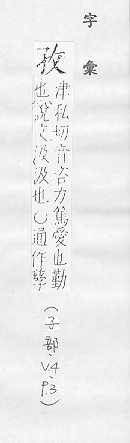 字彙
孜
津私切音咨力篤愛也勤
也說文汲汲也〇通作孳
(子部,V4,P.3)